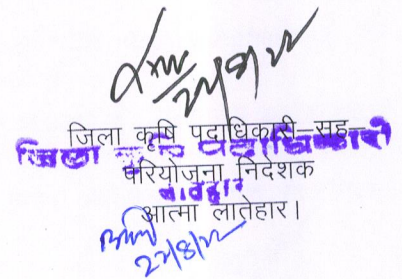 जिला कृषि पदाधिकारी–सह–
जिला कृषि पदाधिकारी
परियोजना निदेशक
लातेहार
आत्मा लातेहार।